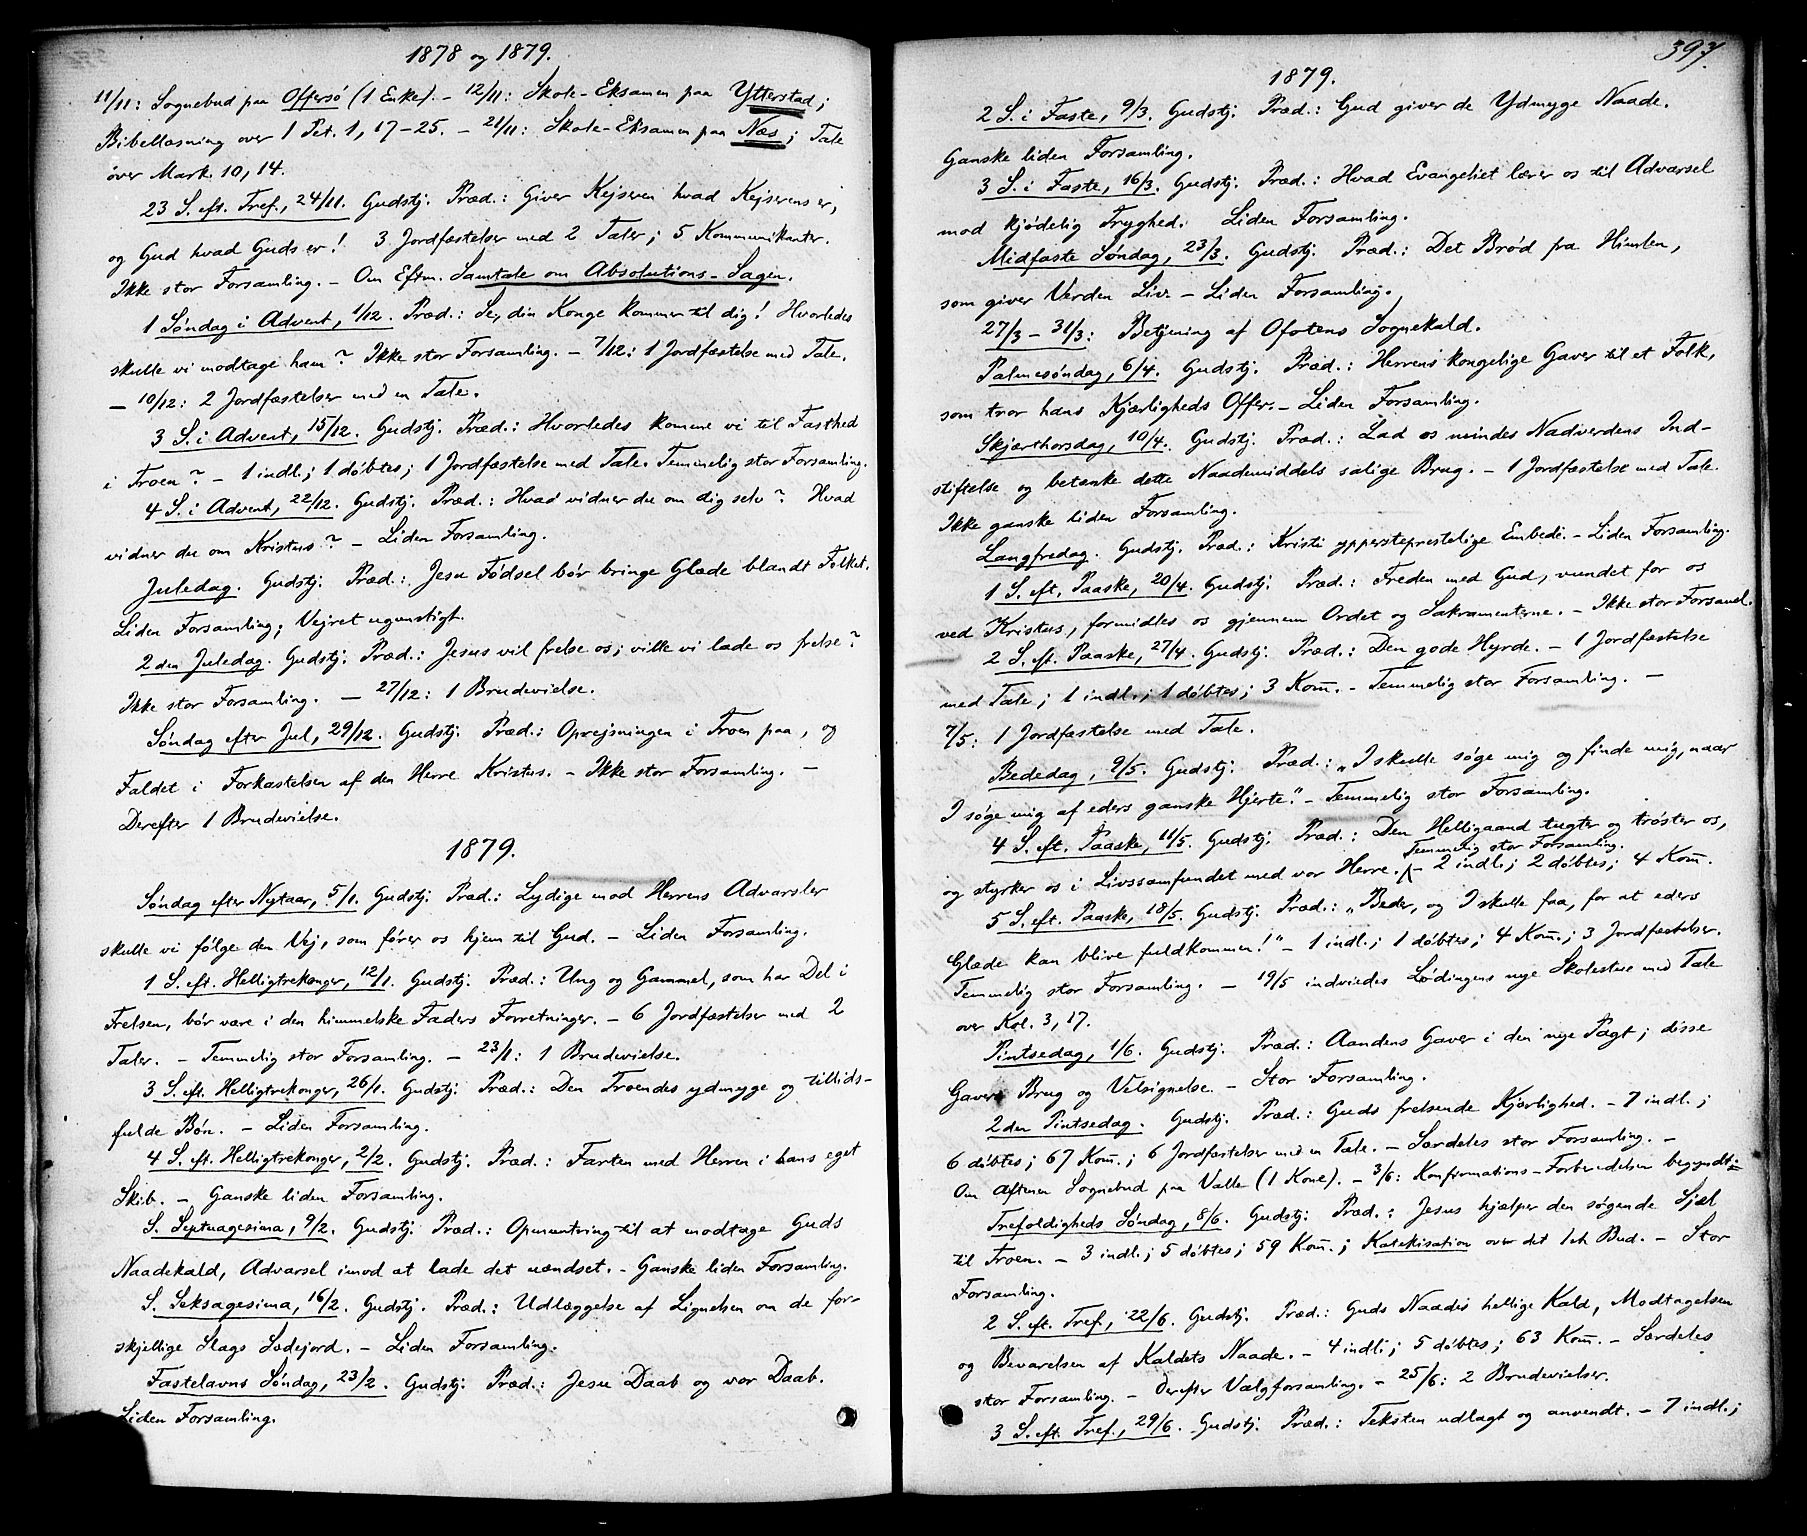 1878 og 1879.
11/11: Sognebud paa Offersø (1 Enke). – 12/11: Skole-Eksamen paa Ytterstad;
Bibellæsning over 1 Pet. 1, 17–25. – 21/11: Skole-Eksamen paa Næs; Tale
over Mark. 10, 14.
23 S. eft. Tref., 24/11. Gudstj. Præd.: Giver Kejseren hvad Kejserens er,
og Gud hvad Guds er! 3 Jordfæstelser med 2 Taler; 5 Kommunikanter.
Ikke stor Forsamling. – Om Eftm. Samtale om Absolutions-Sagen.
1 Søndag i Advent, 1/12. Præd.: Se, din Konge kommer til dig! Hvorledes
skulle vi modtage ham? Ikke stor Forsamling. – 7/12: 1 Jordfæstelse med Tale.
– 10/12: 2 Jordfæstelser med en Tale.
3 S. i Advent, 15/12. Gudstj. Præd.: Hvorledes komme vi til Fasthed
i Troen? – 1 indl.; 1 døbtes; 1 Jordfæstelse med Tale. Temmelig stor Forsamling.
4 S. i Advent, 22/12. Gudstj. Præd.: Hvad vidner du om dig selv? Hvad
vidner du om Kristus? – Liden Forsamling.
Juledag. Gudstj. Præd.: Jesu Fødsel bør bringe Glæde blandt Folket.
Liden Forsamling; Vejret ugunstigt.
2den Juledag. Gudstj. Præd.: Jesus vil frelse os; ville vi lade os frelse?
Ikke stor Forsamling. – 27/12: 1 Brudevielse.
Søndag efter Jul, 29/12. Gudstj. Præd.: Oprejsningen i Troen paa, og
Faldet i Forkastelsen af den Herre Kristus. – Ikke stor Forsamling. –
Derefter 1 Brudevielse.
1879.
Søndag efter Nytaar, 5/1. Gudstj. Præd.: Lydige mod Herrens Advarsler
skulle vi følge den Vej, som fører os hjem til Gud. – Liden Forsamling.
1 S. eft. Helligtrekonger, 12/1. Gudstj. Præd.: Ung og Gammel, som har Del i
Frelsen, bør være i den himmelske Faders Forretninger. – 6 Jordfæstelser med 2
Taler. – Temmelig stor Forsamling. – 23/1: 1 Brudevielse.
3 S. eft. Helligtrekonger, 26/1. Gudstj. Præd.: Den Troendes ydmyge og tillids-
fulde Bøn. – Liden Forsamling.
4 S. eft. Helligtrekonger, 2/2. Gudstj. Præd.: Farten med Herren i hans eget
Skib. – Ganske liden Forsamling.
S. Septuagesima, 9/2. Gudstj. Præd.: Opmuntring til at modtage Guds
Naadekald, Advarsel imod at lade det uændset. – Ganske liden Forsamling.
S. Seksagesima, 16/2. Gudstj. Præd.: Udlæggelse af Lignelsen om de for-
skjellige Slags Sædejord. – Liden Forsamling.
Fastelavns Søndag, 23/2. Gudstj. Præd.: Jesu Daab og vor Daab.
Liden Forsamling.
397.
1879.
2 S. i Faste, 9/3. Gudstj. Præd.: Gud giver de Ydmyge Naade.
Ganske liden Forsamling.
3 S. i Faste, 16/3. Gudstj. Præd.: Hvad Evangeliet lærer os til Advarsel
mod kjødelig Tryghed. Liden Forsamling.
Midfaste Søndag, 23/3. Gudstj. Præd.: Det Brød fra Himlen,
som giver Verden Liv. – Liden Forsamling.
27/3 – 31/3: Betjening af Ofotens Sognekald.
Palmesøndag, 6/4. Gudstj. Præd.: Herrens kongelige Gaver til et Folk,
som tror hans Kjærligheds Offer. – Liden Forsamling.
Skjærthorsdag, 10/4. Gudstj. Præd.: Lad os mindes Nadverdens Ind-
stiftelse og betænke dette Naademiddels salige Brug. – 1 Jordfæstelse med Tale.
Ikke ganske liden Forsamling.
Langfredag. Gudstj. Præd.: Kristi ypperstepræstelige Embede. – Liden Forsamling.
1 S. eft. Paaske, 20/4. Gudstj. Præd.: Freden med Gud, vundet for os
ved Kristus, formidles os gjennem Ordet og Sakramenterne. – Ikke stor Forsaml.
2 S. eft. Paaske, 27/4. Gudstj. Præd.: Den gode Hyrde. – 1 Jordfæstelse
med Tale; 1 indl.; 1 døbtes; 3 Kom̅. – Temmelig stor Forsamling. –
7/5: 1 Jordfæstelse med Tale.
Bededag, 9/5. Gudstj. Præd.: „I skulle søge mig og finde mig, naar
I søge mig af eders ganske Hjerte." – Temmelig stor Forsamling.
4 S. eft. Paaske, 11/5. Gudstj. Præd.: Den Helligaand tugter og trøster os,
Temmelig stor Forsamling.
og styrker os i Livssamfundet med vor Herre. – 2 indl.; 2 døbtes; 4 Kom̅.
5 S. eft. Paaske, 18/5. Gudstj. Præd.: „Beder, og I skulle faa, for at eders
Glæde kan blive fuldkommen!" – 1 indl.; 1 døbtes; 4 Kom̅.; 3 Jordfæstelser.
Temmelig stor Forsamling. – 19/5 indviedes Lødingens nye Skolestue med Tale
over Kol. 3, 17.
Pintsedag, 1/6. Gudstj. Præd.: Aandens Gaver i den nye Pagt; disse
Gavers Brug og Velsignelse. – Stor Forsamling.
2den Pintsedag. Gudstj. Præd.: Guds frelsende Kjærlighed. – 7 indl.;
6 døbtes; 67 Kom̅.; 6 Jordfæstelser med en Tale. – Særdeles stor Forsamling. –
Om Aftenen Sognebud paa Valle (1 Kone). – 3/6: Konfirmations-Forberedelsen begyndt.
Trefoldigheds Søndag, 8/6. Gudstj. Præd.: Jesus hjælper den søgende Sjæl
til Troen. – 3 indl.; 5 døbtes; 59 Kom̅.; Katekisation over det 1ste Bud. – Stor
Forsamling.
2 S. eft. Tref., 22/6. Gudstj. Præd.: Guds Naades hellige Kald, Modtagelsen
og Bevarelsen af Kaldets Naade. – 4 indl.; 5 døbtes; 63 Kom̅. – Særdeles
stor Forsamling. – Derefter Valgforsamling. – 25/6: 2 Brudevielser.
3 S. eft. Tref., 29/6. Gudstj. Præd.: Teksten udlagt og anvendt. – 7 indl.;